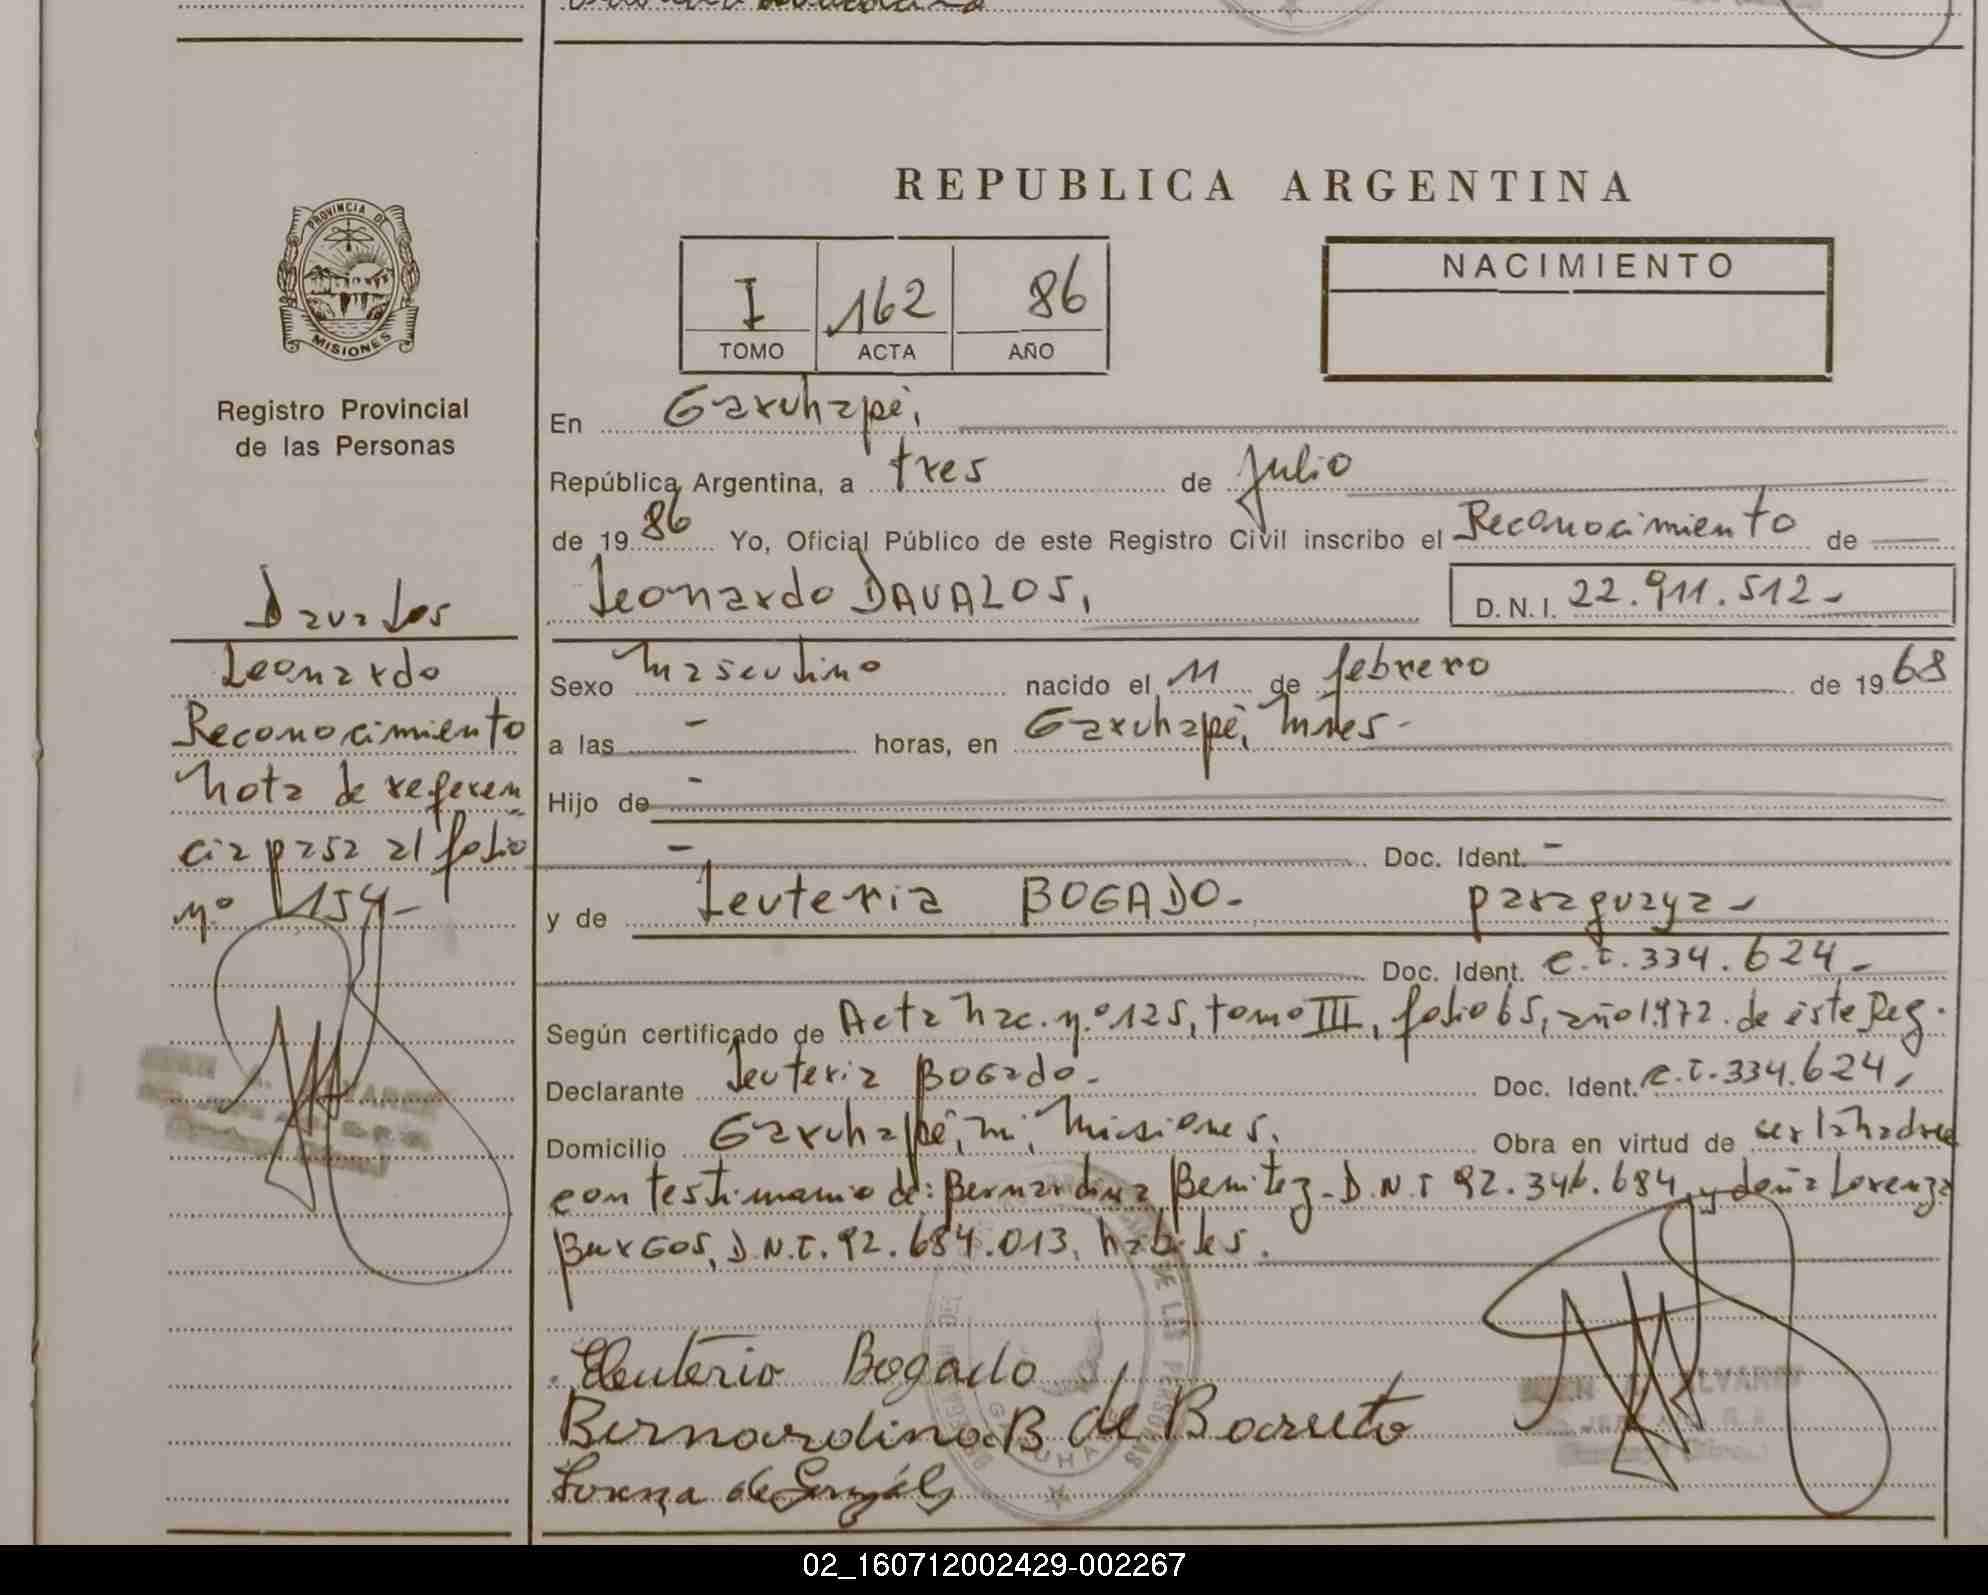 REPUBLICA ARGENTINA
PROVINCIA DE
MISIONES
I 162 86
TOMO ACTA AÑO
NACIMIENTO
Registro Provincial
de las Personas
Davalos
Leonardo
Reconocimiento
Nota de referen
cia pasa al folio
nº 154-
En Garuhapé,
República Argentina, a tres de Julio
de 19 86 Yo, Oficial Público de este Registro Civil inscribo el Reconocimiento de
Leonardo DAVALOS, D.N.I. 22.911.512-
Sexo Masculino nacido el 11 de febrero de 19 68
a las - horas, en Garuhapé, Mnes-
Hijo de -
- Doc. Ident. -
y de Leuteria BOGADO- paraguaya-
Doc. Ident. C.I. 334.624-
Según certificado de Acta Nac. nº 125, tomo III, folio 65, año 1972 de éste Reg.
Declarante Leuteria BOGADO- Doc. Ident. C.I. 334.624,
Domicilio Garuhapé, Misiones. Obra en virtud de ser la madre
con testimonio de: Bernardina Benitez- D.N.I 92.346.684 y doña Lorenza
BURGOS, D.N.I. 92.684.013, habiles.
Eleuteria Bogado
Bernardina B de Barreto
Lorenza de
DE LAS PERSONAS
02_160712002429-002267